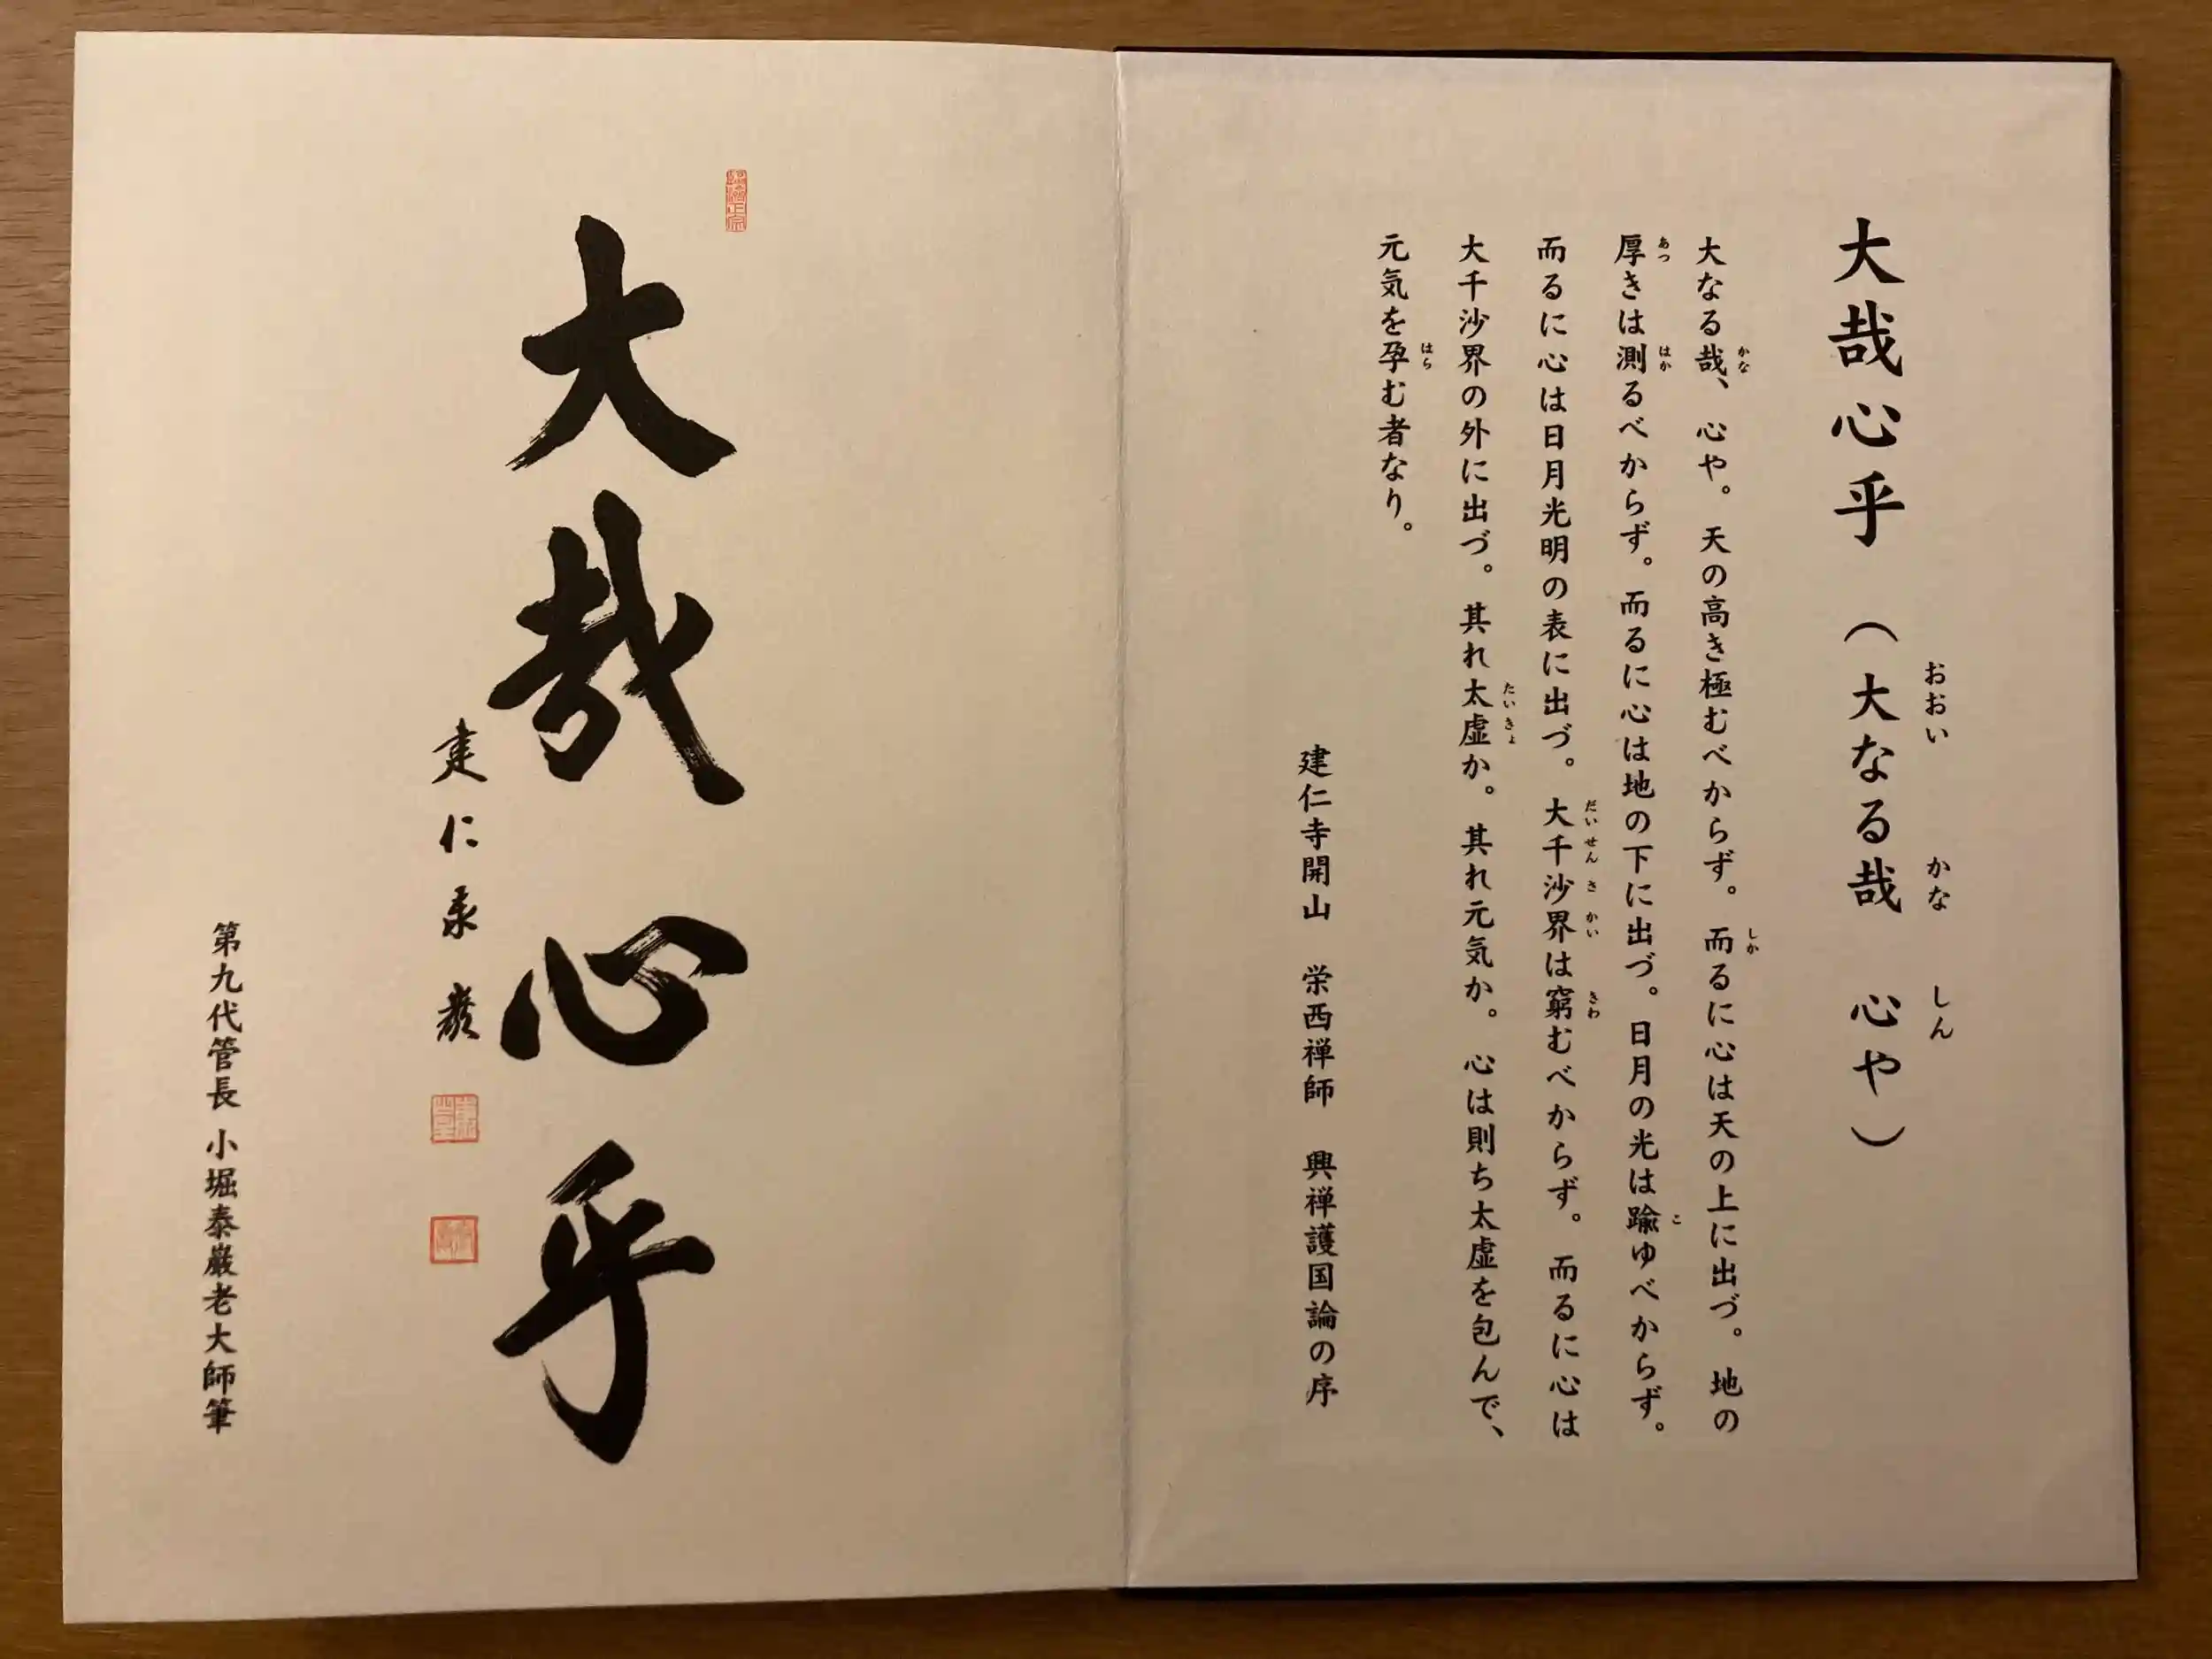 大哉心乎（大なる哉　心や）
おおい　かな　しん
大なる哉、心や。天の高き極むべからず。而るに心は天の上に出づ。地の
かな　しか
厚きは測るべからず。而るに心は地の下に出づ。日月の光は踰ゆべからず。
あつ　はか　こ
而るに心は日月光明の表に出づ。大千沙界は窮むべからず。而るに心は
だいせんさかい　きわ
大千沙界の外に出づ。其れ太虚か。其れ元気か。心は則ち太虚を包んで、
たいきょ
元気を孕む者なり。
はら
建仁寺開山　栄西禅師　興禅護国論の序
大哉心乎
建仁泰巖
第九代管長 小堀泰巖老大師筆